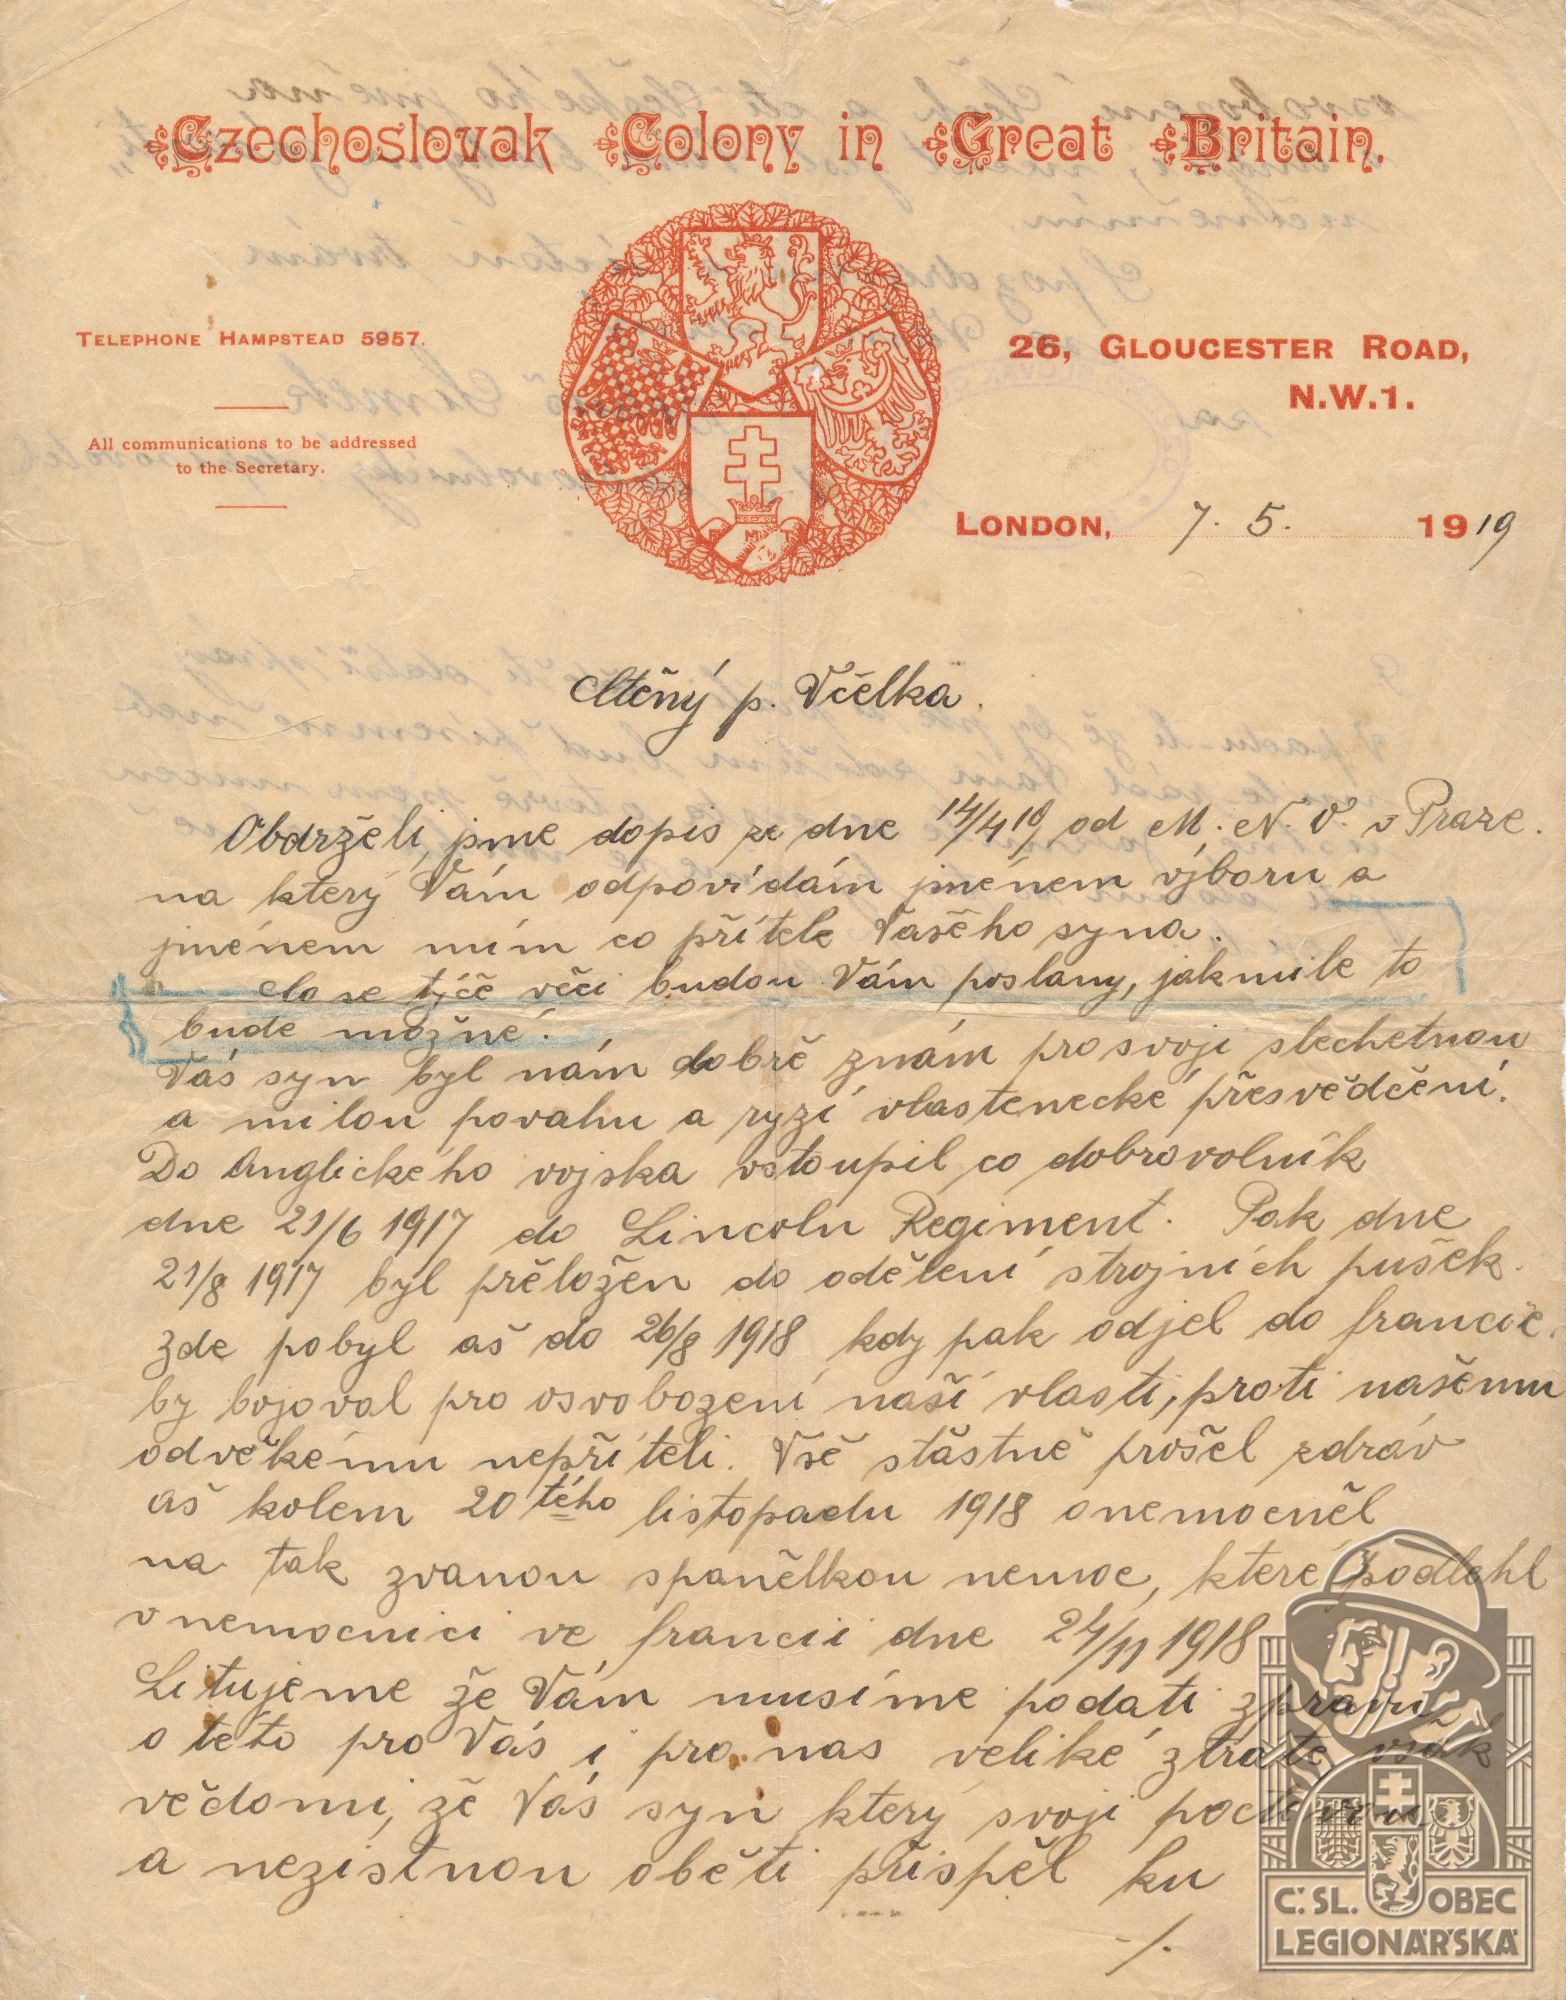 Czechoslovak Colony in Great Britain.
Telephone Hampstead 5957.
All communications to be addressed
to the Secretary.
26, Gloucester Road,
N.W.1.
London, 7. 5. 1919
Ctěný p. Včelka.
Obdrželi jsme dopis ze dne 14/4 19 od M. N. V. v Praze.
na který Vám odpovídám jménem výboru a
jménem mím co přítele Vašého syna.
Co se týčě věci budou Vám poslany, jakmile to
bude možné.
Váš syn byl nám dobrě znám pro svoji slechetnou
a milou povahu a ryzí vlastenecké přesvědčění.
Do Anglického vojska vstoupil co dobrovolník
dne 21/6 1917 do Lincoln Regiment. Pak dne
21/8 1917 byl přeložen do odělení strojních pušek.
zde pobyl aš do 26/8 1918 kdy pak odjel do francie.
by bojoval pro osvobození naší vlasti, proti našemu
odvěkému nepříteli. Vše stástně prošel zdráv
aš kolem 20tého listopadu 1918 onemocněl
na tak zvanou spanělkou nemoc, které podlehl
v nemocnici ve francii dne 24/11 1918
Litujeme že Vám musíme podati zpravu
o této pro Vás i pro nas veliké ztratě, však
vědomi, že Váš syn který svoji poctivou
a nezistnou oběti přispěl ku
-/.
Č. SL. OBEC
LEGIONÁŘSKÁ